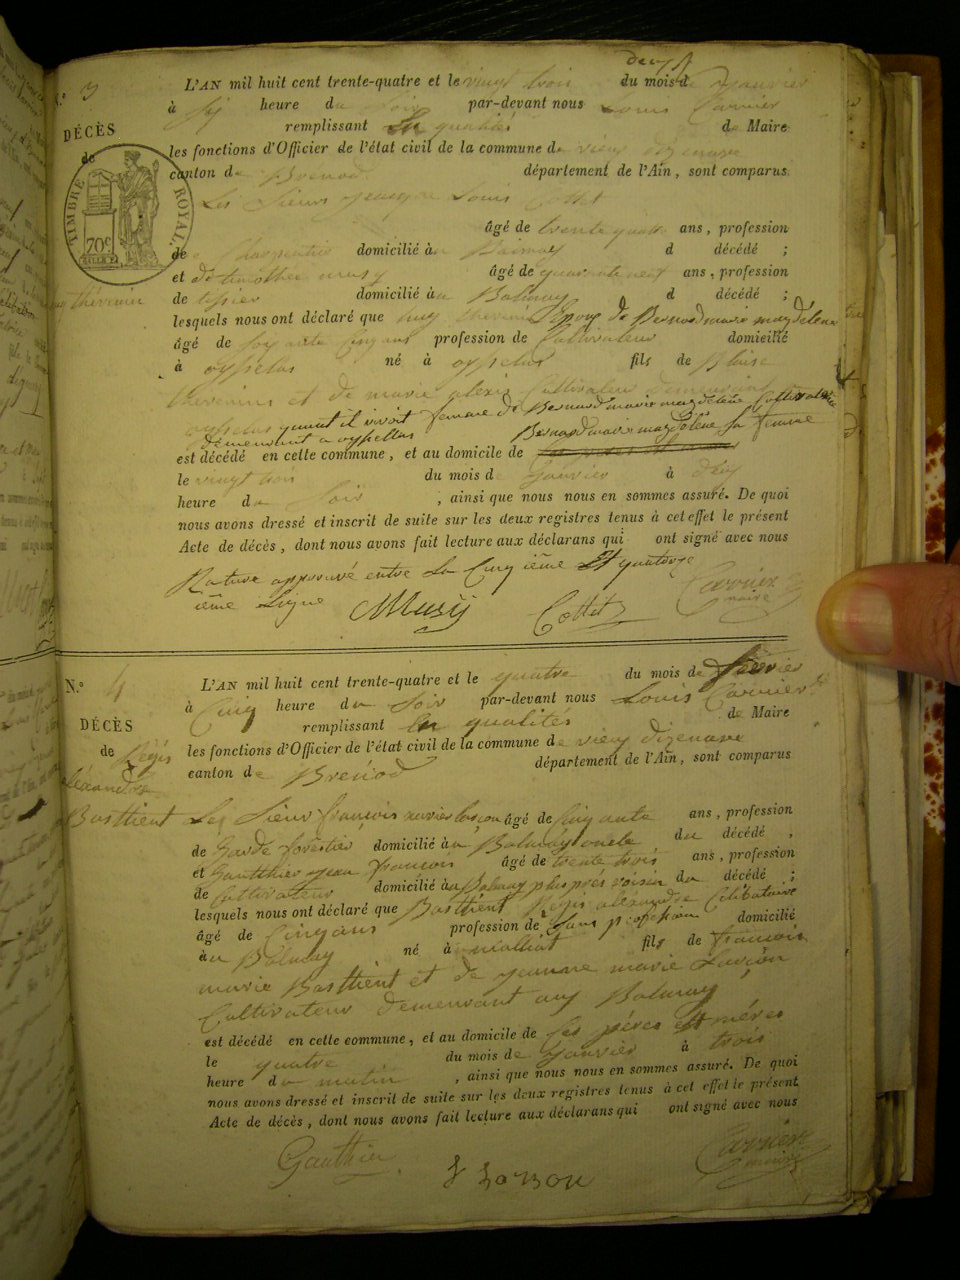 N.° 3 L'AN mil huit cent trente-quatre et le vingt trois du mois d Janvier
à six heure du Soir par-devant nous Louis Carrier
DÉCÈS remplissant En qualités de Maire
de les fonctions d'Officier de l'état civil de la commune de vieux dizenave
canton de Brenod département de l'Ain, sont comparus
TIMBRE ROYAL 70c
Les Sieurs Louis Cottet
âgé de trente quatre ans, profession
de Charpentier domicilié à d décédé ;
et de timothé musy âgé de quarante neuf ans, profession
thévenin de tissier domicilié à Balmay d décédé ;
lesquels nous ont déclaré que thévenin Epoux de Bernard marie magdeléne
âgé de soixante cinq ans profession de Cultivateur domicilié
à né à fils de Blaise
thevenin et de marie alexis Cultivateur demeurant
quant il vivoit femme de Bernard marie magdeléne Cultivatrice
demeurant a Bernard marie magdeléne sa femme
est décédé en cette commune, et au domicile de
le vingt trois du mois de Janvier à
heure du Soir ; ainsi que nous nous en sommes assuré. De quoi
nous avons dressé et inscrit de suite sur les deux registres tenus à cet effet le présent
Acte de décès, dont nous avons fait lecture aux déclarans qui ont signé avec nous
Rature approuvé entre la Cinq ième Et quatorze
ième Ligne MMusy Cottet Carrier
maire
N.° 4 L'AN mil huit cent trente-quatre et le quatre du mois de
à Cinq heure du Soir par-devant nous Louis Carrier
DÉCÈS remplissant En qualités de Maire
de Régis les fonctions d'Officier de l'état civil de la commune de vieux dizenave
alexandre canton de Brénod département de l'Ain, sont comparus
Basttient Les Sieur françois xavier âgé de Cinquante ans, profession
de Garde forestier domicilié à Balmay oncle du décédé ,
et Gautthier Jean françois âgé de trente trois ans, profession
de Cultivateur domicilié au Balmay plus prés voisin du décédé ;
lesquels nous ont déclaré que Basttient Régis alexandre Célibataire
âgé de Cinq ans profession de Sans profession domicilié
au Balmay né à fils de francois
marie Basttient et de Jeanne marie
Cultivateur demeurant aux Balmay
est décédé en cette commune, et au domicile de Ses péres Et méres
le quatre du mois de Janvier à trois
heure du matin , ainsi que nous nous en sommes assuré. De quoi
nous avons dressé et inscrit de suite sur les deux registres tenus à cet effet le présent
Acte de décès, dont nous avons fait lecture aux déclarans qui ont signé avec nous
Gauthier Carrier
maire